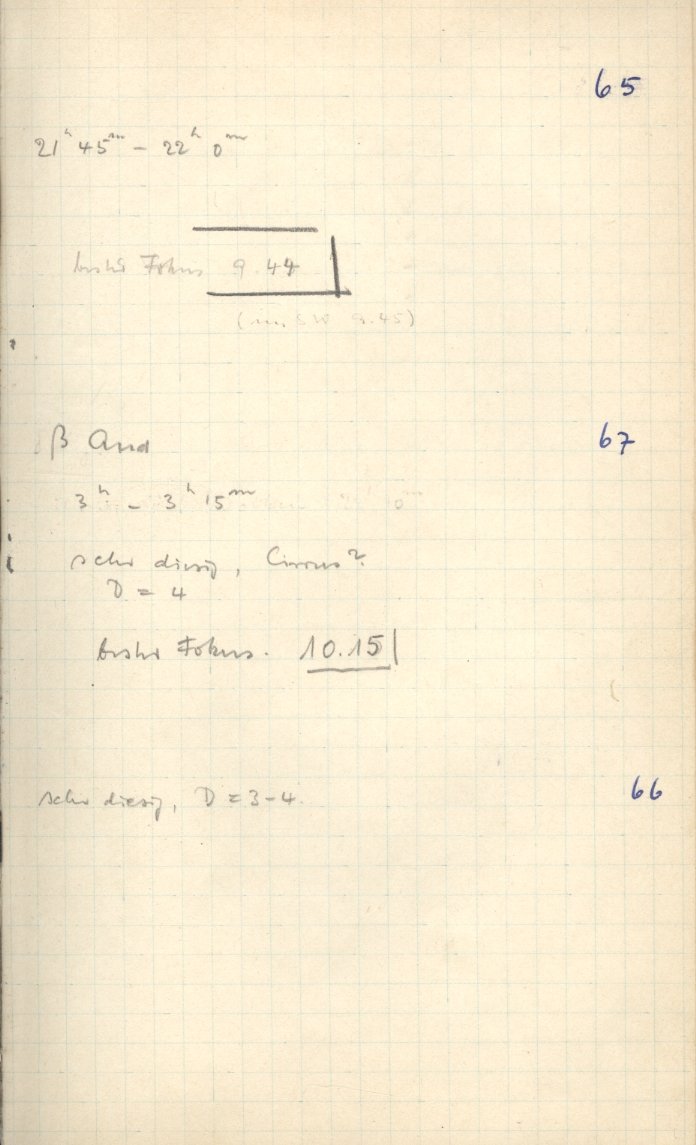 65
21ʰ 45ᵐ – 22ʰ 0ᵐ
bester Fokus 9.44
(im SW 9.45)
β And 67
3ʰ – 3ʰ 15ᵐ
sehr diesig, Cirrus?
D = 4
bester Fokus. 10.15
sehr diesig, D = 3–4. 66